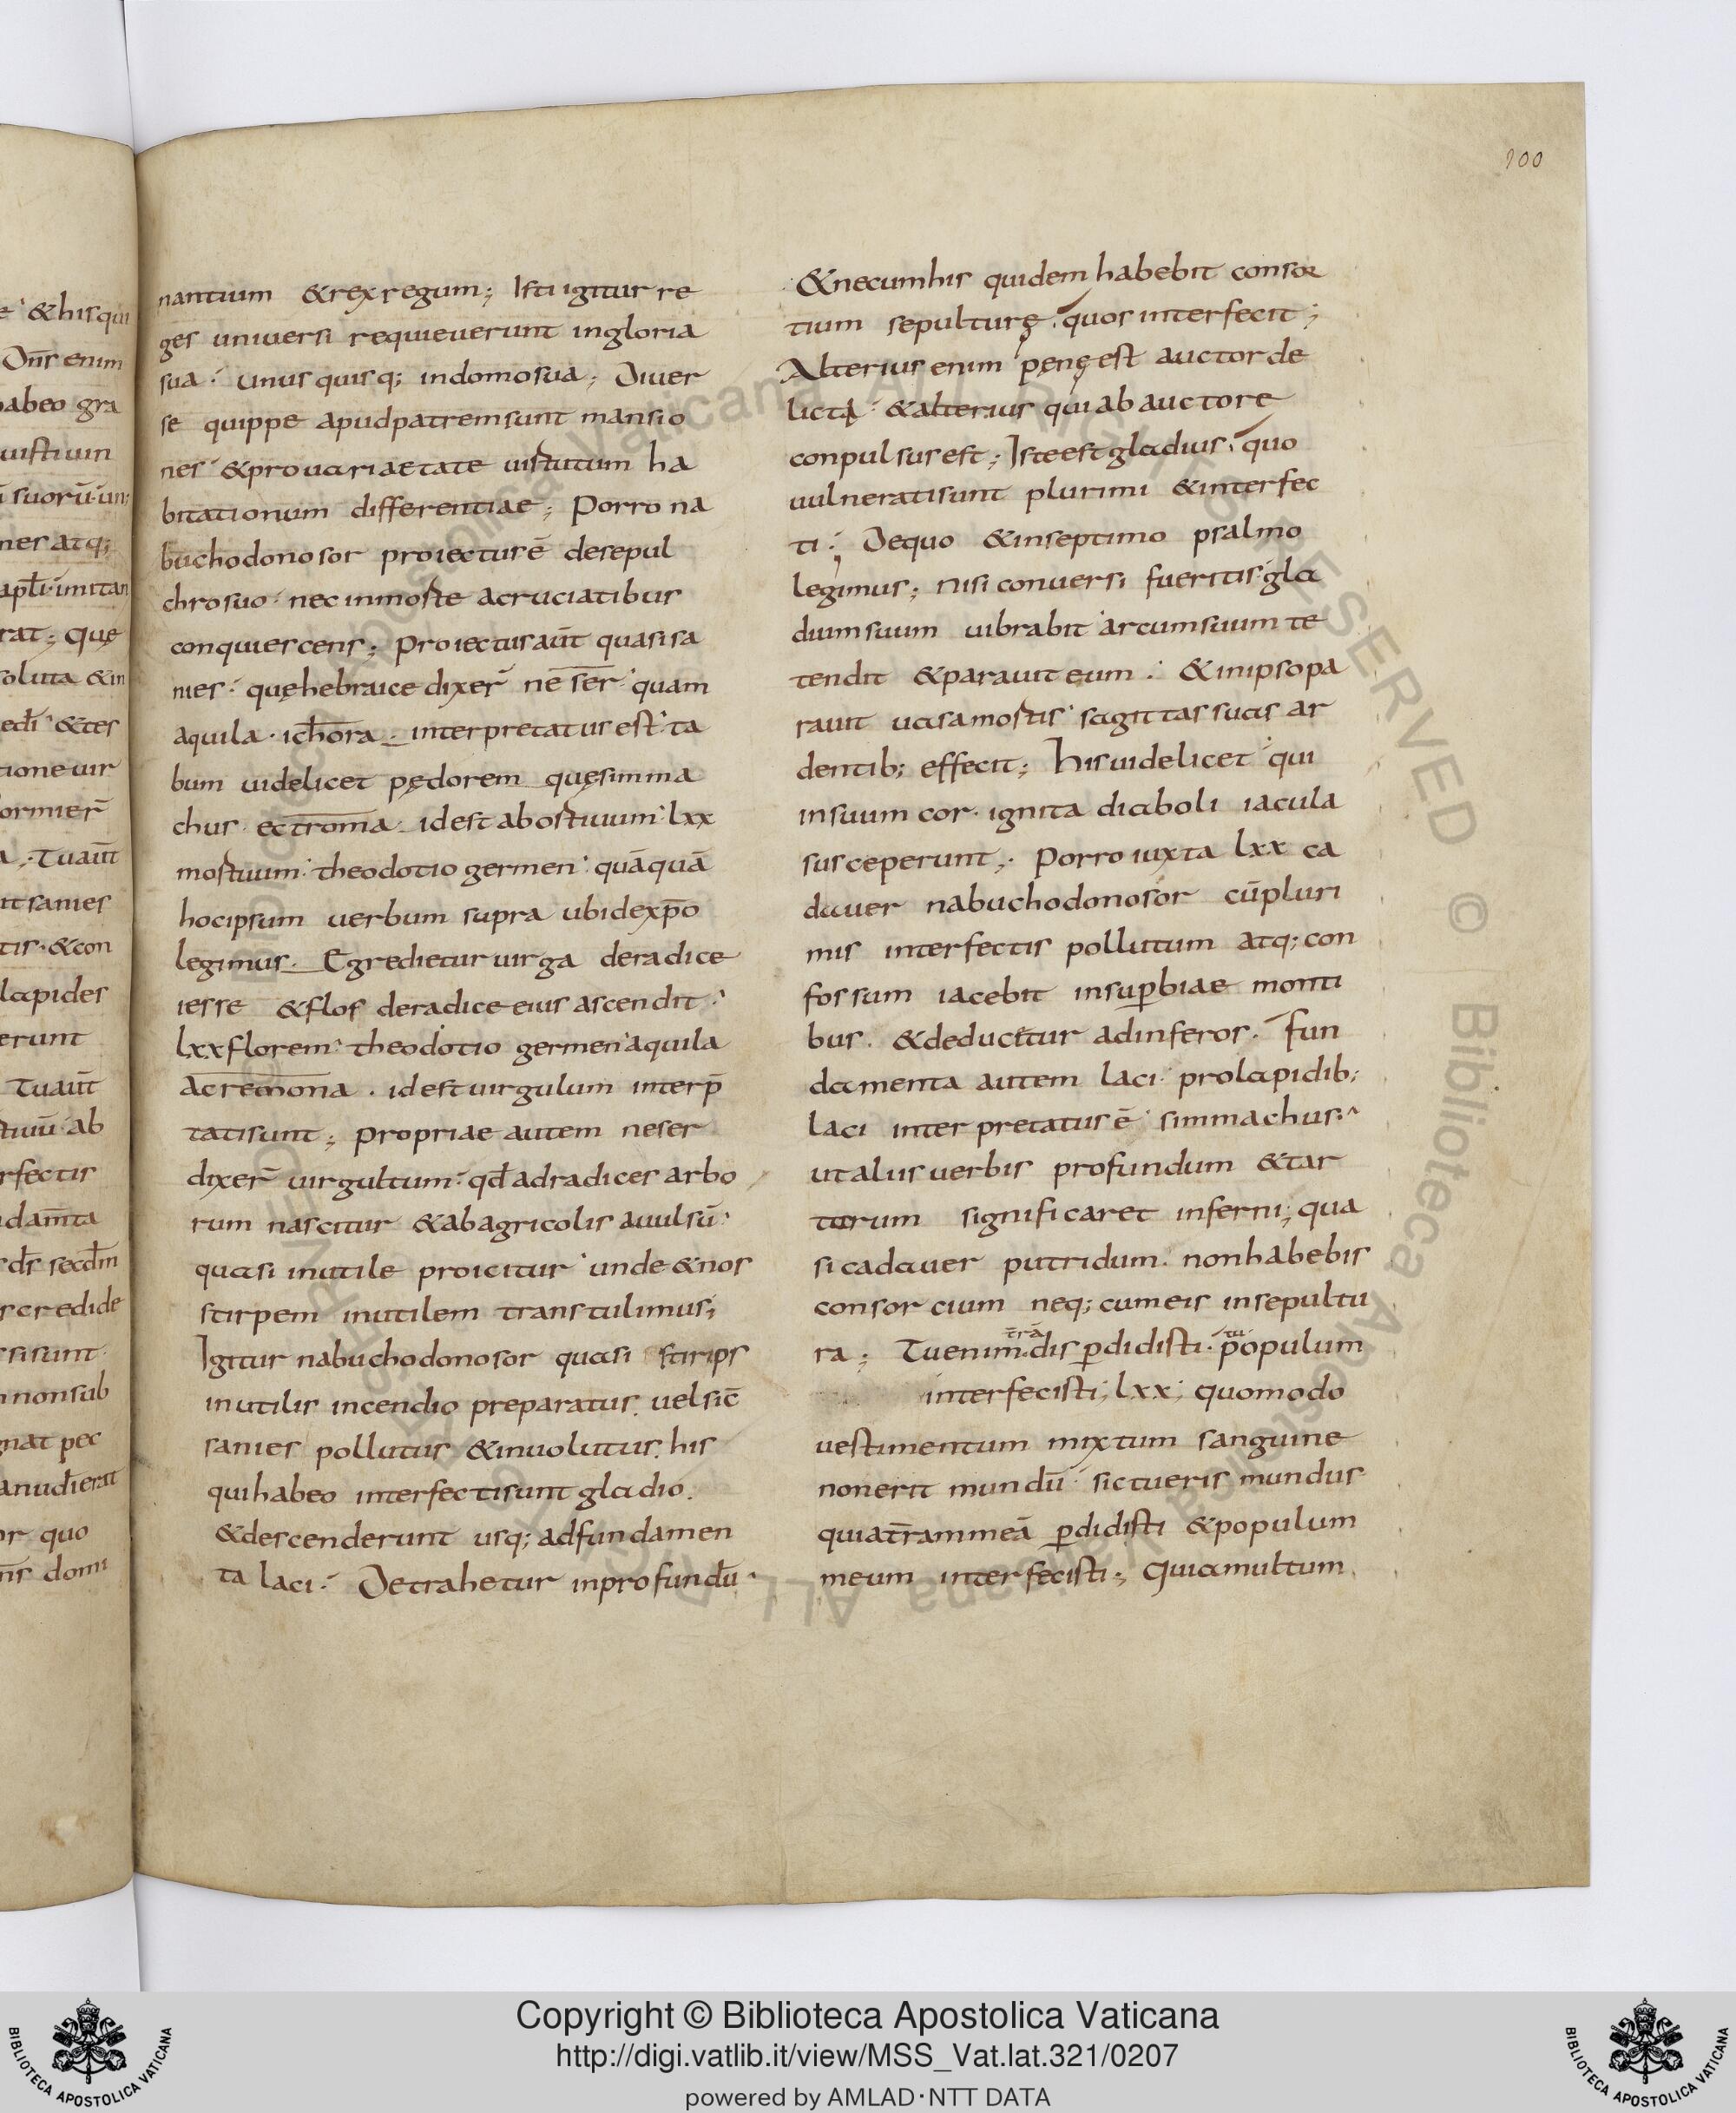 100
nantium &rexregum; Isti igitur re
ges uniuersi requieuerunt ingloria
sua: unusquisq; indomosua; Diuer
se quippe apudpatremsunt mansio
nes &prouariaetate uirtutum ha
bitationum differentiae; Porro na
buchodonosor proiecturē desepul
chrosuo nec inmorte acruciatibus
conquiescens; Proiectusaūt quasisa
nies: quęhebraice dixer̄ nēsēr quam
aquila ichora interpretatusest ta
bum uidelicet pędorem quęsimma
chus ectroma idest abortiuum lxx
mortuum theodotio germen quāquā
hocipsum uerbum supra ubidexp̄o
legimus. Egredietur uirga deradice
iesse &flos deradice eius ascendit:
lxx florem theodotio germen aquila
acremona . idest uirgulum interp̄
tatisunt; Propriae autem neser
dixer̄ uirgultum: qđ adradices arbo
rum nascitur &abagricolis auulsū:
quasi inutile proicitur unde &nos
stirpem inutilem transtulimus;
Igitur nabuchodonosor quasi stirips
inutilis incendio preparatus. uelsic̄
sanies pollutus &inuolutus. his
quihabeo interfectisunt gladio.
&descenderunt usq; adfundamen
ta laci: Detrahetur inprofundū
&necumhis quidem habebit consor
tium sepulturę quos interfecit;
Alterius enim pęnę est auctor de
lictị &alterius qui ab auctore
conpulsusest; Iste est gladius quo
uulneratisunt plurimi &interfec
ti; Dequo &inseptimo psalmo
legimus; nisi conuersi fueritis gla
diumsuum uibrabit arcumsuum te
tendit &parauit eum: &inipsopa
rauit uasamortis sagittassuas ar
dentib; effecit; hisuidelicet qui
insuum cor ignita diaboli iacula
susceperunt; Porro iuxta lxx ca
dauer nabuchodonosor cūpluri
mis interfectis pollutum atq; con
fossum iacebit insuꝑbiae monti
bus. &deducetur adinferos. fun
damenta autem laci prolapidib;
laci interpretatusē simmachus:
utaliisuerbis profundum &tar
tarum significaret inferni; qua
sicadauer putridum. nonhabebis
consorcium neq; cumeis insepultu
t̄rā tu
ra; Tuenim.dis ꝑdidisti. populum
interfecisti; lxx; quomodo
uestimentum mixtum sanguine
nonerit mundū sictueris mundus
quiat̄rammeā ꝑdidisti &populum
meum interfecisti; Quiamultum
Copyright © Biblioteca Apostolica Vaticana
http://digi.vatlib.it/view/MSS_Vat.lat.321/0207
powered by AMLAD·NTT DATA
BIBLIOTECA APOSTOLICA VATICANA
BIBLIOTECA APOSTOLICA VATICANA